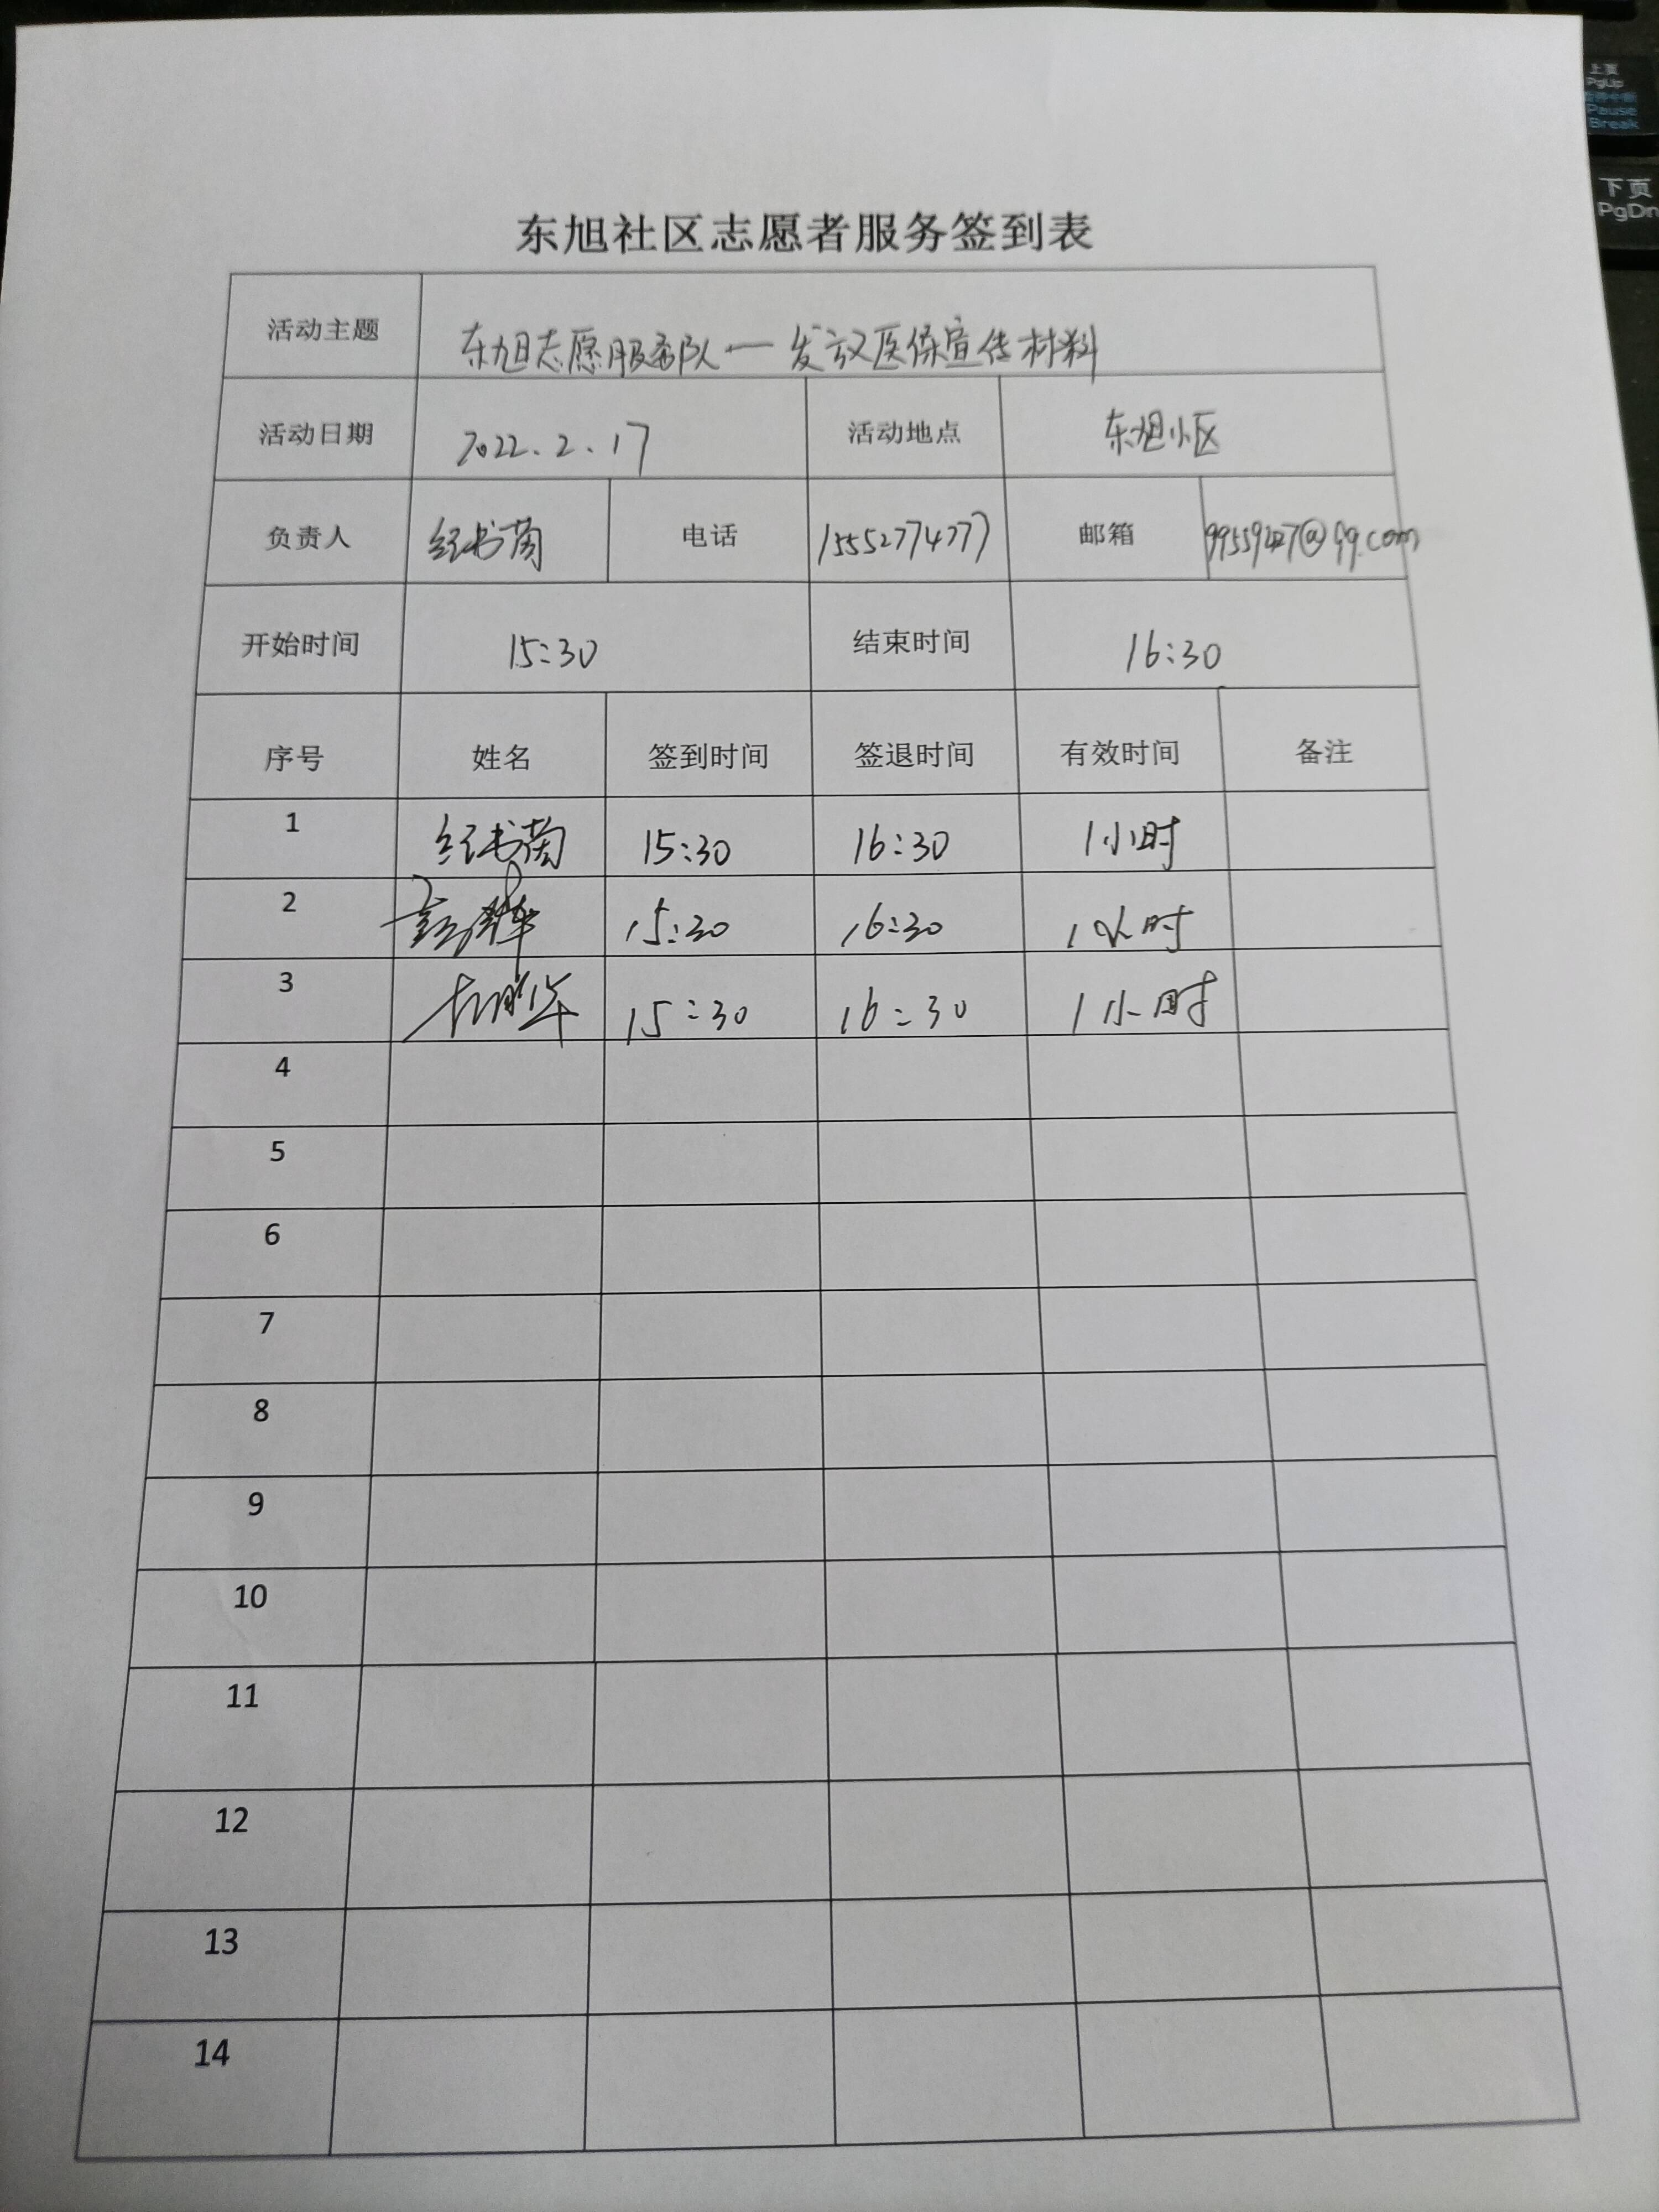 上页
PgUp
Pause
Break
下页
PgDn
东旭社区志愿者服务签到表
活动主题 东旭志愿服务队——发放医保宣传材料
活动日期 2022.2.17 活动地点 东旭小区
负责人 经书茵 电话 15552774777 邮箱 @qq.com
开始时间 15:30 结束时间 16:30
序号 姓名 签到时间 签退时间 有效时间 备注
1 经书茵 15:30 16:30 1小时
2 15:30 16:30 1小时
3 15:30 16:30 1小时
4
5
6
7
8
9
10
11
12
13
14